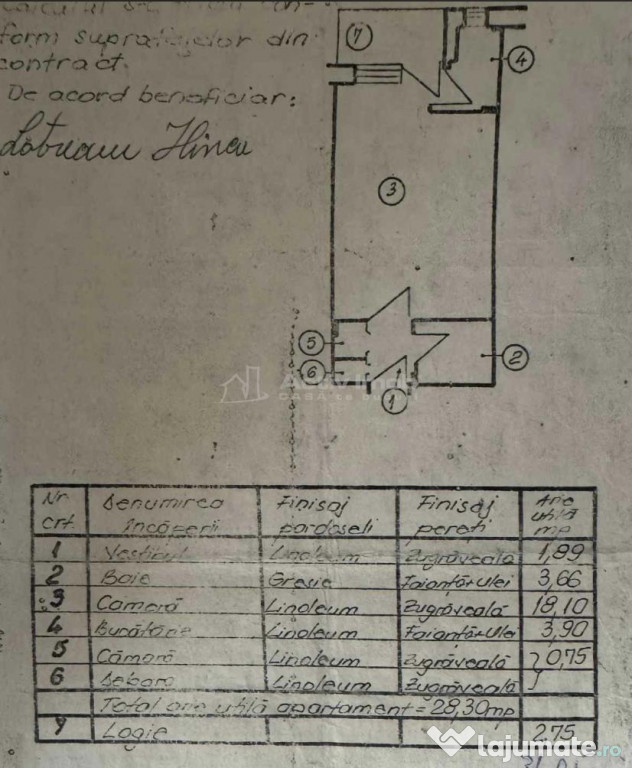 form suprafețelor din
contract.
De acord beneficiar:
7
4
3
5
6
2
1
CASA ta bună
Nr. crt. Denumirea încăperii Finisaj pardoseli Finisaj pereți Arie utilă mp
1 Vestibul Linoleum Zugrăveală 1,89
2 Baie Gresie Faianță+ulei 3,66
3 Cameră Linoleum Zugrăveală 18,10
4 Bucătărie Linoleum Faianță+ulei 3,90
5 Cămară Linoleum Zugrăveală } 0,75
6 Debara Linoleum Zugrăveală
Total arie utilă apartament = 28,30 mp
7 Logie 2,75
lajumate.ro